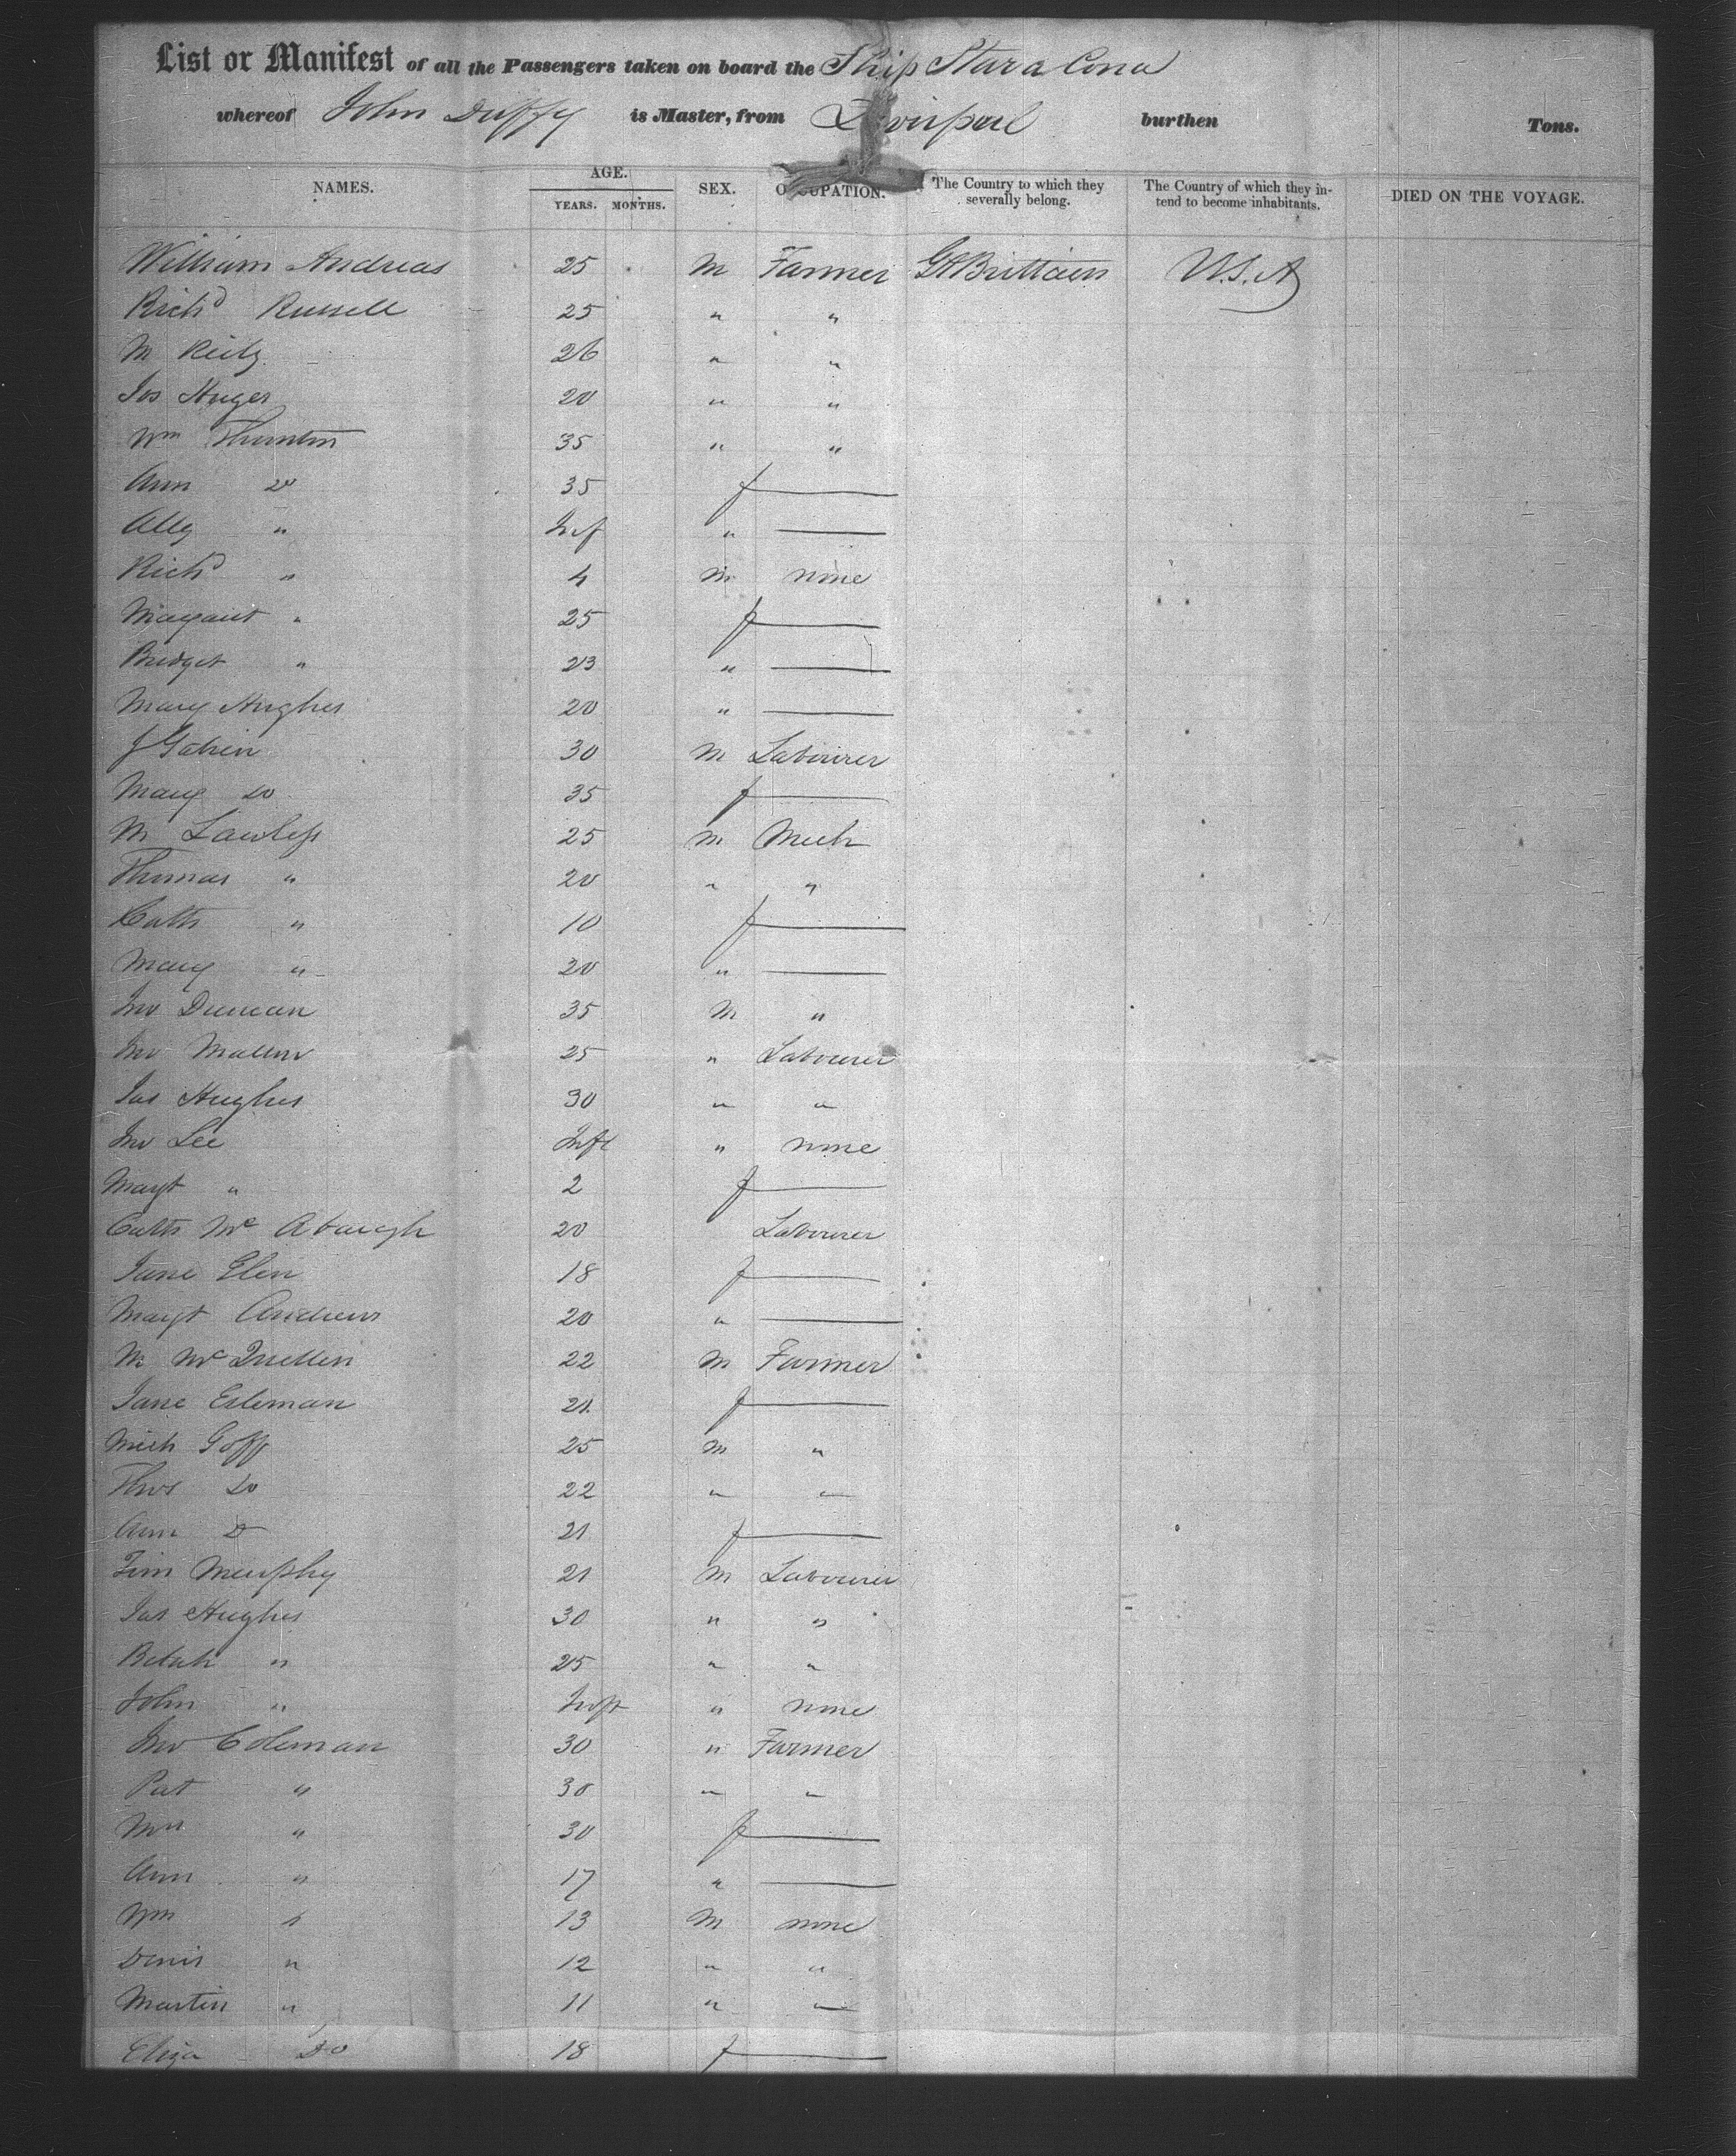 List or Manifest of all the Passengers taken on board the Ship Stara Cona
whereof John Duffy is Master, from Liverpool burthen Tons.
NAMES. AGE. YEARS. MONTHS. SEX. OCCUPATION. The Country to which they severally belong. The Country of which they intend to become inhabitants. DIED ON THE VOYAGE.
William Andreas 25 M Farmer Gt Brittain U.S.A
Richd Russell 25 " "
M Reily 26 " "
Jos Huges 20 " "
Wm Thunton 35 " "
Ann Do 35 f
Ally " Inf "
Richd " 4 M none
Magaret " 25 f
Bridget " 23 "
Mary Hughes 20 "
J Gahin 30 M Labourer
Mary Do 35 f
M Lawless 25 M Mech
Thomas " 20 " "
Cath " 10 f
Mary " 20 "
Jno Duncan 35 M "
Jno 25 " Labourer
Jas Hughes 30 " "
Jno Lee Inft " none
Margt " 2 f
Cath Mc Abaugh 20 Labourer
Jane Elen 18 f
Margt Andrews 20 "
M Mc Quellen 22 M Farmer
Jane Esleman 21 f
Mich Goff 25 M "
Thos Do 22 " "
Ann D 21 f
Tim Murphy 21 M Labourer
Jas Hughes 30 " "
" 25 " "
John " Inft " none
Jno Coleman 30 " Farmer
Pat " 30 " "
Mrs " 30 f
Ann " 17 "
Wm " 13 M none
Denis " 12 " "
Martin " 11 " "
Eliza Do 18 f